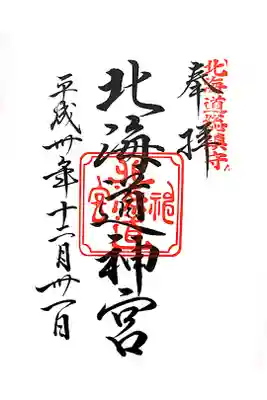 北海道総鎮守
奉拝
北海道神宮
平成卅年十二月卅一日